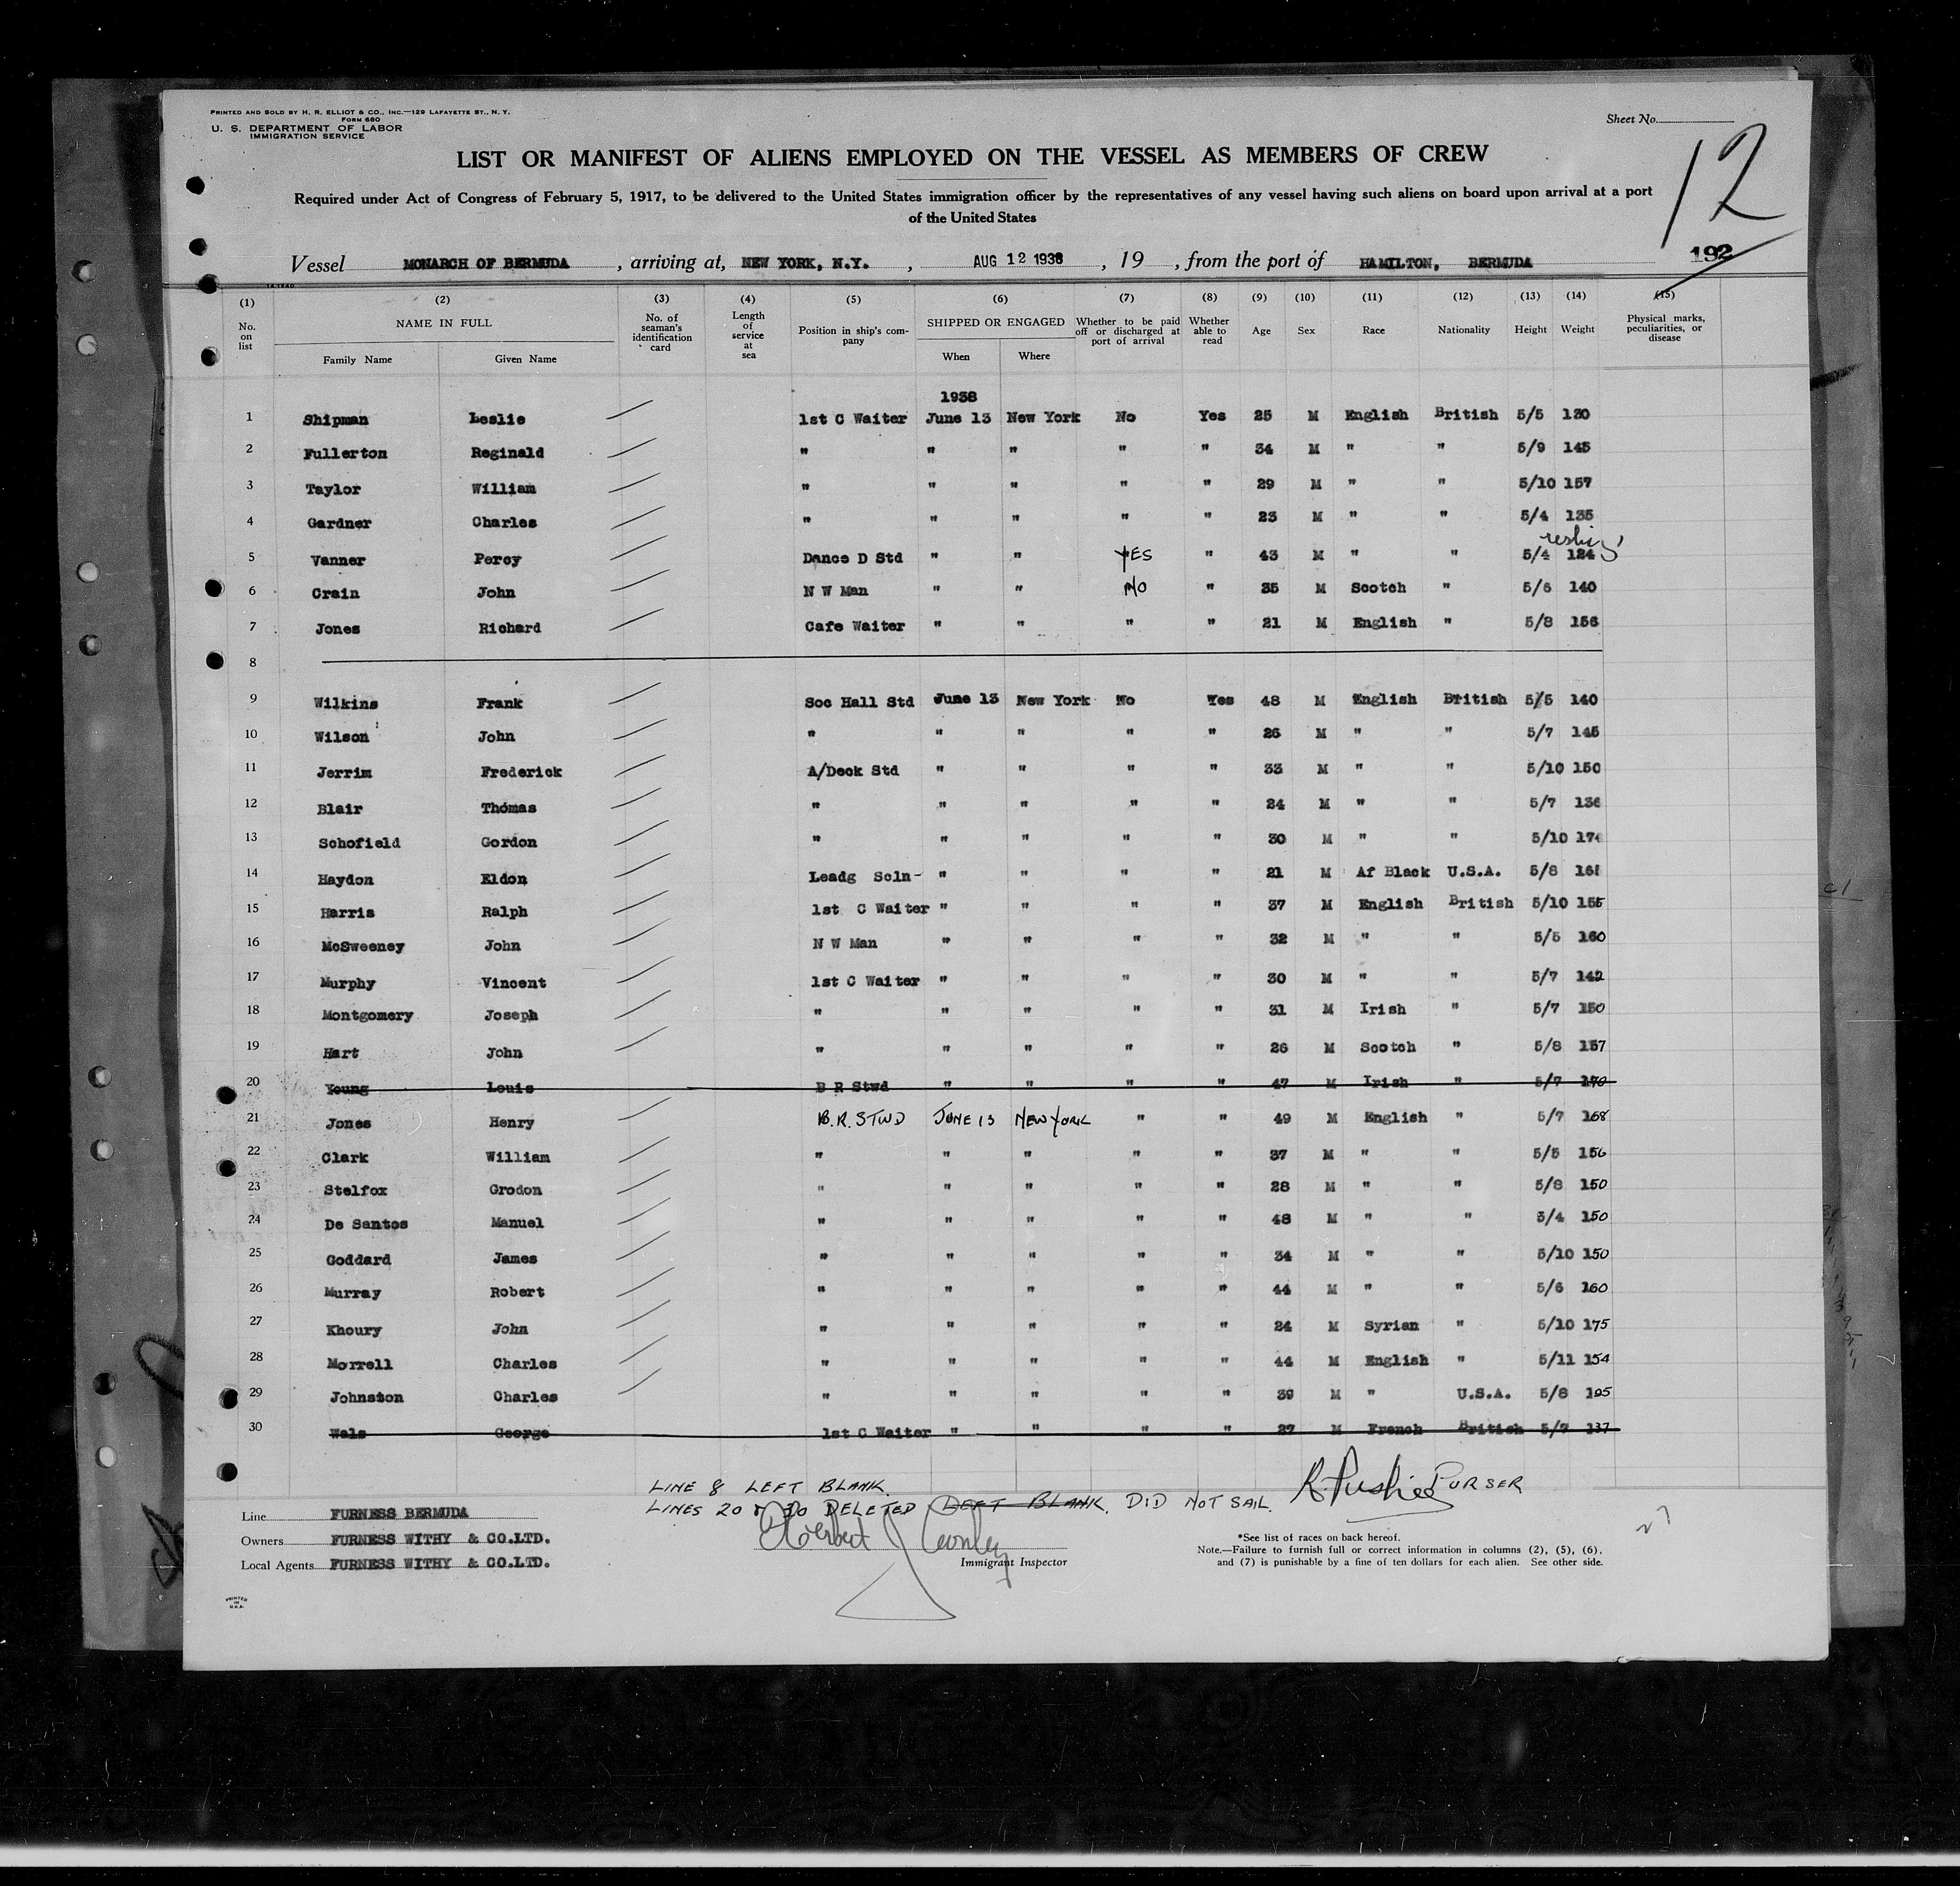 PRINTED AND SOLD BY H. R. ELLIOT & CO., INC.—129 LAFAYETTE ST., N. Y.
FORM 680
U. S. DEPARTMENT OF LABOR
IMMIGRATION SERVICE
Sheet No.
12
LIST OR MANIFEST OF ALIENS EMPLOYED ON THE VESSEL AS MEMBERS OF CREW
Required under Act of Congress of February 5, 1917, to be delivered to the United States immigration officer by the representatives of any vessel having such aliens on board upon arrival at a port
of the United States
Vessel MONARCH OF BERMUDA , arriving at, NEW YORK, N.Y. , AUG 12 1938 , 19 , from the port of HAMILTON, BERMUDA 192
(1) (2) (3) (4) (5) (6) (7) (8) (9) (10) (11) (12) (13) (14) (15)
No. on list NAME IN FULL Family Name Given Name No. of seaman's identification card Length of service at sea Position in ship's company SHIPPED OR ENGAGED When Where Whether to be paid off or discharged at port of arrival Whether able to read Age Sex Race Nationality Height Weight Physical marks, peculiarities, or disease
1938
1 Shipman Leslie 1st C Waiter June 13 New York No Yes 25 M English British 5/5 130
2 Fullerton Reginald " " " " " 34 M " " 5/9 145
3 Taylor William " " " " " 29 M " " 5/10 157
4 Gardner Charles " " " " " 23 M " " 5/4 135
5 Vanner Percy Dance D Std " " YES " 43 M " " 5/4 124
6 Crain John N W Man " " NO " 35 M Scotch " 5/6 140
7 Jones Richard Cafe Waiter " " " " 21 M English " 5/8 156
8
9 Wilkins Frank Soc Hall Std June 13 New York No Yes 48 M English British 5/5 140
10 Wilson John " " " " " 26 M " " 5/7 145
11 Jerrim Frederick A/Deck Std " " " " 33 M " " 5/10 150
12 Blair Thomas " " " " " 24 M " " 5/7 136
13 Schofield Gordon " " " " " 30 M " " 5/10
14 Haydon Eldon Leadg Scln- " " " " 21 M Af Black U.S.A. 5/8
15 Harris Ralph 1st C Waiter " " " " 37 M English British 5/10 155
16 McSweeney John N W Man " " " " 32 M " " 5/5 160
17 Murphy Vincent 1st C Waiter " " " " 30 M " " 5/7 142
18 Montgomery Joseph " " " " " 31 M Irish " 5/7 150
19 Hart John " " " " " 26 M Scotch " 5/8 157
20 Young Louis B R Stwd " " " " 47 M Irish " 5/7 170
21 Jones Henry B.R. STWD JUNE 13 NEW YORK " " 49 M English " 5/7 168
22 Clark William " " " " " 37 M " " 5/5 156
23 Stelfox Grodon " " " " " 28 M " " 5/8 150
24 De Santos Manuel " " " " " 48 M " " 5/4 150
25 Goddard James " " " " " 34 M " " 5/10 150
26 Murray Robert " " " " " 44 M " " 5/6 160
27 Khoury John " " " " " 24 M Syrian " 5/10 175
28 Morrell Charles " " " " " 44 M English " 5/11 154
29 Johnston Charles " " " " " 39 M " U.S.A. 5/8 195
30 Wals George 1st C Waiter " " " " 27 M French British 5/7 137
LINE 8 LEFT BLANK.
LINES 20 & 30 DELETED LEFT BLANK. DID NOT SAIL. PURSER
Line FURNESS BERMUDA
Owners FURNESS WITHY & CO.LTD.
Local Agents FURNESS WITHY & CO.LTD.
Herbert J
Immigrant Inspector
*See list of races on back hereof.
Note.—Failure to furnish full or correct information in columns (2), (5), (6),
and (7) is punishable by a fine of ten dollars for each alien. See other side.
PRINTED
IN
U.S.A.